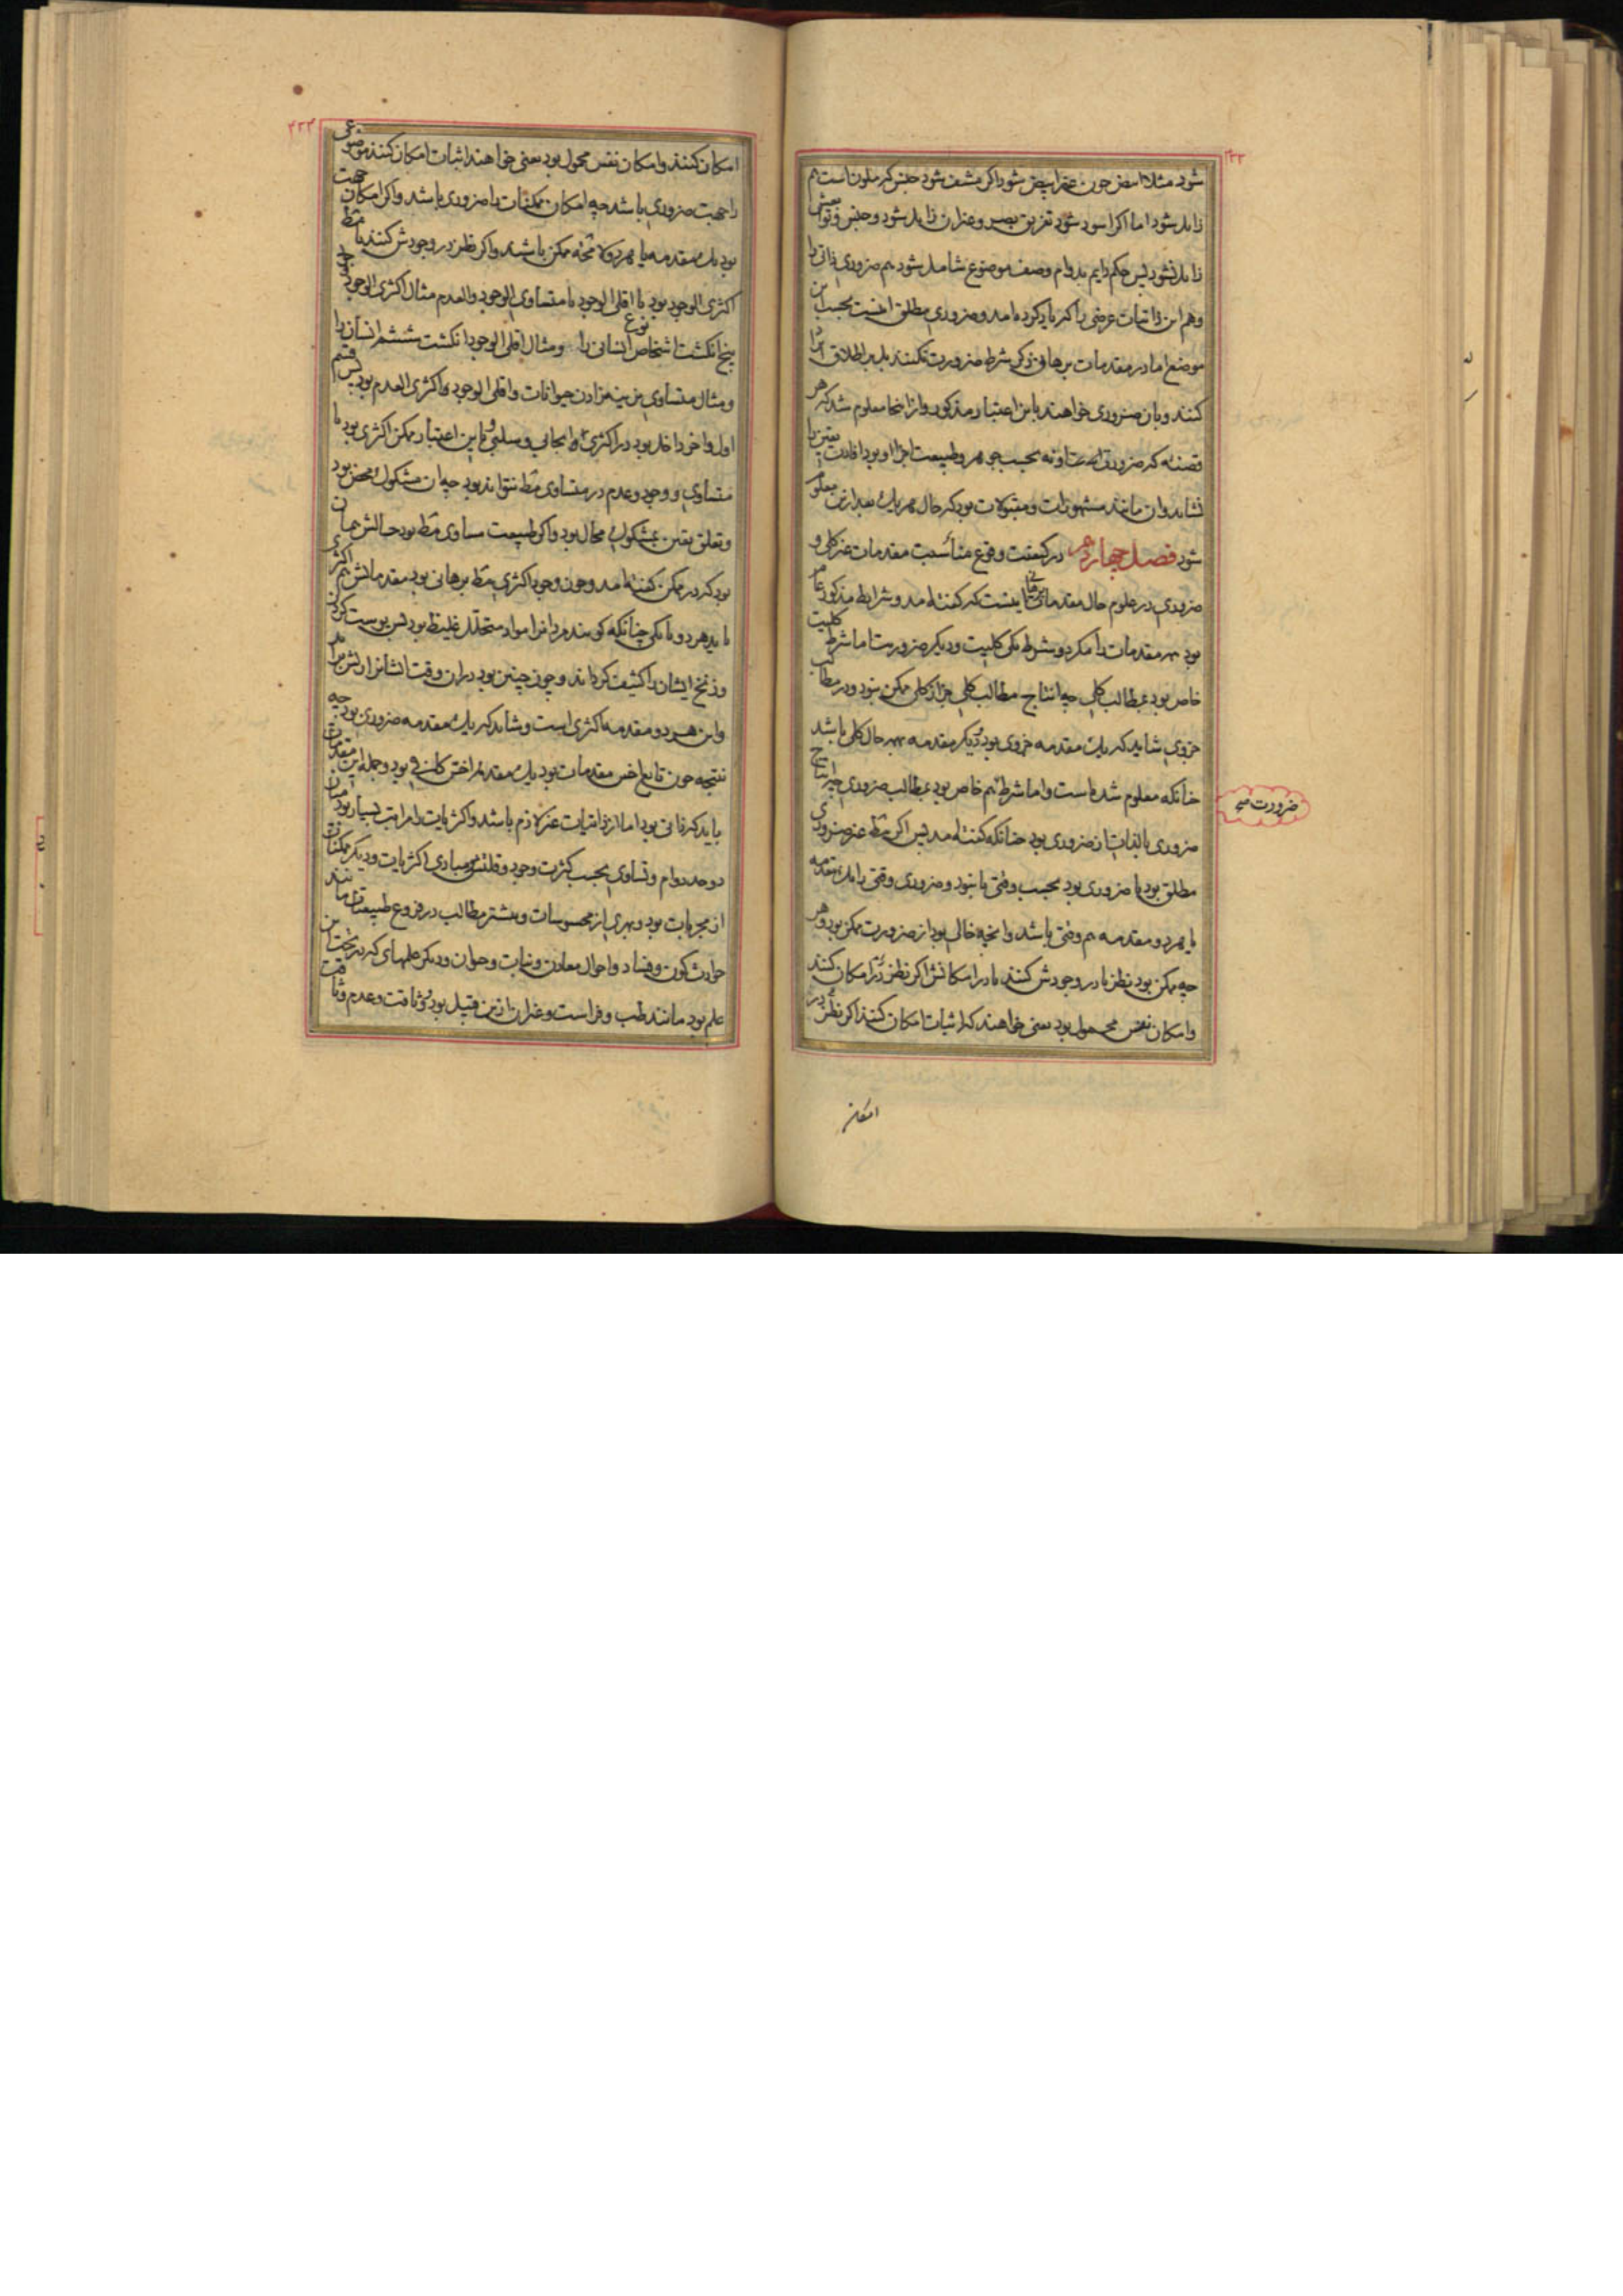 ۴۳۳
شود مثلا ابیض چون غیر ابیض شود اگر مشف شود جنس که ملون است هم
زایل شود اما اگر اسود شود تفریق بصر و غیر آن زایل شود و جنس و نوعش
زایل نشود پس حکم دایم بدوام وصف موضوع شامل شود هم ضروری ذاتی را
و هم این ذاتیات عرضی را که یاد کرده آمد و ضروری مطلق اینست بحسب این
موضع اما در مقدمات برهانی ذکر شرط ضرورت نکنند بل بر اطلاق ایراد
کنند و بآن ضروری خواهند باین اعتبار مذکور و از اینجا معلوم شد که هر
قضیه که ضرورتی الصدق نه بحسب جوهر و طبیعت اجزا او بود افادت یقین را
نشاید و آن مانند مشهورات و مقبولات بود که حال هر یک بعد ازین معلوم
شود فصل چهاردهم در کیفیت وقوع مناسبت مقدمات غیر کلی و
ضروری در علوم حال مقدمات برهانی اینست که گفته آمد و شرایط مذکور عام
بود همه مقدمات را مگر دو شرط یکی کلیت و دیگر ضرورت اما شرط کلیت
خاص بود بمطالب کلی چه انتاج مطالب کلی جز از کلی ممکن نبود و در مطالب
جزوی شاید که یک مقدمه جزوی بود و دیگر مقدمه بهر حال کلی باشد
چنانکه معلوم شده است و اما شرط هم خاص بود بمطالب ضروری چه انتاج
ضرورت صح
ضروری بالذات از ضروری بود چنانکه گفته آمد پس اگر مط غیر ضروری
مطلق بود یا ضروری بود بحسب وقتی یا نبود و ضروری وقتی را یک مقدمه
یا هر دو مقدمه هم وقتی باشد و آنچه خالی بود از ضرورت ممکن بود و هر
چه ممکن بود نظر یا در وجودش کنند یا در امکانش اگر نظر در امکان کنند
و امکان نفس محمول بود یعنی خواهند که اثبات امکان کنند اگر نظر در
امکان
۴۳۴
امکان کنند و امکان نفس محمول بود یعنی خواهند اثبات امکان کنند موضوعی
را جهت ضروری باشد چه امکان ممکنات را ضروری باشد و اگر امکان جهت
بود یک مقدمه یا هر دو لا محه ممکن باشند و اگر نظر در وجودش کنند یا مط
اکثری الوجود بود یا اقلی الوجود یا متساوی الوجود والعدم مثال اکثری الوجود وجود
پنج انگشت اشخاص نوع انسانی را و مثال اقلی الوجود انگشت ششم انسان را
و مثال متساوی نرینه زادن حیوانات و اقلی الوجود اکثری العدم بود پس قسم
اول و آخر داخل بود در اکثری ایجابی و سلبی و باین اعتبار ممکن اکثری بود یا
متساوی و وجود و عدم در متساوی مط نتواند بود چه آن مشکوک محض بود
و تعلق یقین بمشکوک محال بود و اگر طبیعت مساوی مط بود حالش همان
بود که در ممکن گفته آمد و چون وجود اکثری مط برهانی بود مقدماتش هم اکثری
باید هر دو یا یکی چنانکه گویند مردانرا مواد متحلل غلیظ بود پس پوست گردن
و زنخ ایشان را کثیف گرداند و چون چنین بود در آن وقت ایشانرا ریش برآید
و این هر دو مقدمه اکثری است و شاید که یک مقدمه ضروری بود چه
نتیجه چون تابع اخس مقدمات بود یک مقدمه اخس کافی بود و جمله این مقدمات
باید که ذاتی بود اما از ذاتیات غیر لازم باشد و اکثریات را مراتب بسیار بود میان
دو حد دوام و تساوی بحسب کثرت وجود و قلتش و مبادی اکثریات و دیگر ممکنات
از مجربات بود و بهری از محسوسات و بیشتر مطالب در فروع طبیعیات مانند
حوادث کون و فساد و احوال معادن و نبات و حیوان و دیگر علمهای که در تحت این
علم بود مانند طب و فراست و غیر آن ازین قبیل بود و وثاقت و عدم وثاقت